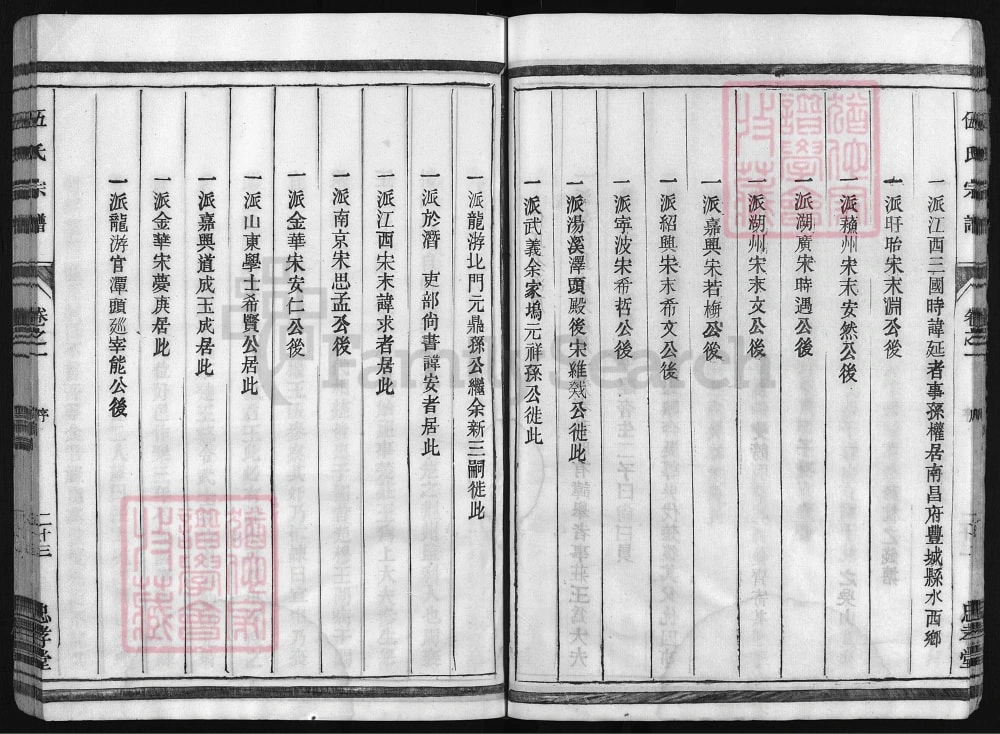 伍氏宗譜
卷之二
忠孝堂
一派江西三國時諱延者事孫權居南昌府豐城縣水西鄉
一派盱眙宋末淵公後
一派贛州宋末安然公後
一派湖廣宋時遇公後
一派湖州宋末文公後
一派嘉興宋若梅公後
一派紹興宋末希文公後
一派寧波宋希哲公後
一派湯溪澤頭殿後宋維幾公徙此
一派武義余家塢元祥孫公徙此
一派龍游北門元鼎孫公繼余新三嗣徙此
一派於潛 吏部尚書諱安者居此
一派江西宋末諱求者居此
一派南京宋思孟公後
一派金華宋安仁公後
一派山東學士希賢公居此
一派嘉興道成玉成居此
一派金華宋夢庚居此
一派龍游官潭頭廵宰能公後
伍氏宗譜
卷之二
序
二十三
忠孝堂
Family Search